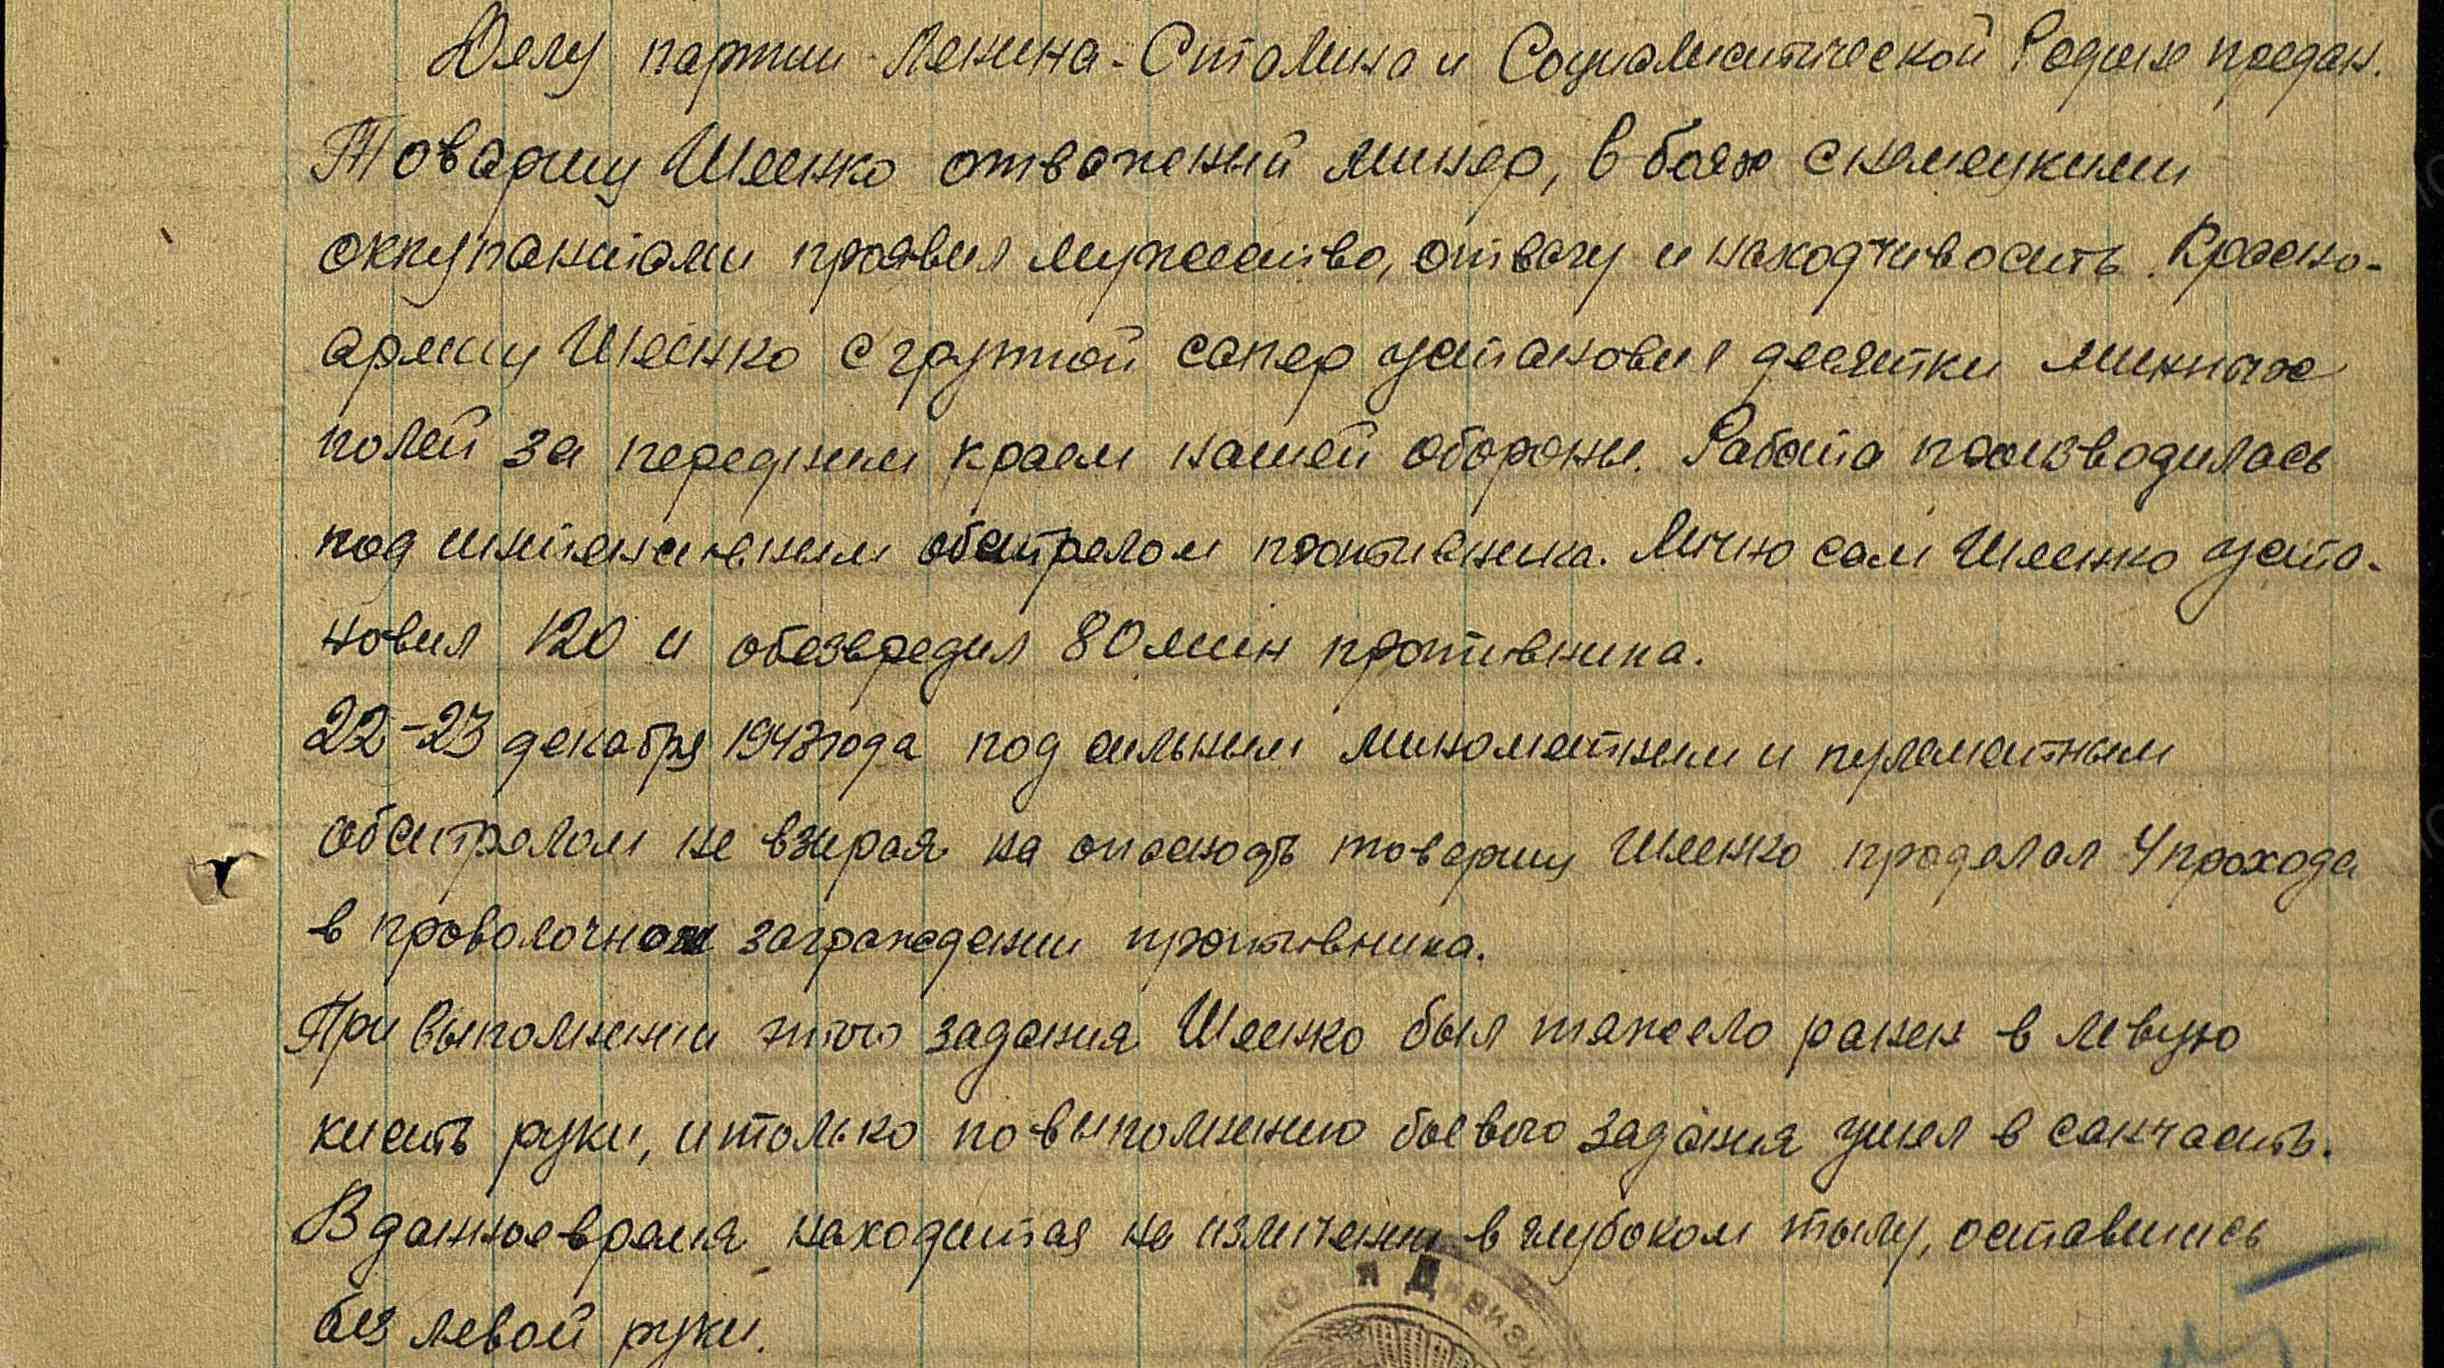 Делу партии Ленина-Сталина и Социалистической Родине предан.
Товарищ Шеенко отважений минер, в боях с немецкими
оккупантами проявил мужество, отвагу и находчивость. Красно-
армиц Шеенко с групой сапер установил десятки минных
полей за передним краем нашей обороны. Работа производилась
под интенсивным обстрелом противника. Лично сам Шеенко уста-
новил 120 и обезвредил 80 мин противника.
22-23 декабря 1943 года под сильным минометным и пулеметным
обстрелом не взирая на опасность товарищ Шеенко проделал 4 прохода
в проволочном заграждении противника.
При выполнении этого задания Шеенко был тяжело ранен в левую
кисть руки, и только по выполнению боевого задания ушел в санчасть.
В данное время находится на изличении в глубоком тылу, оставшись
без левой руки.